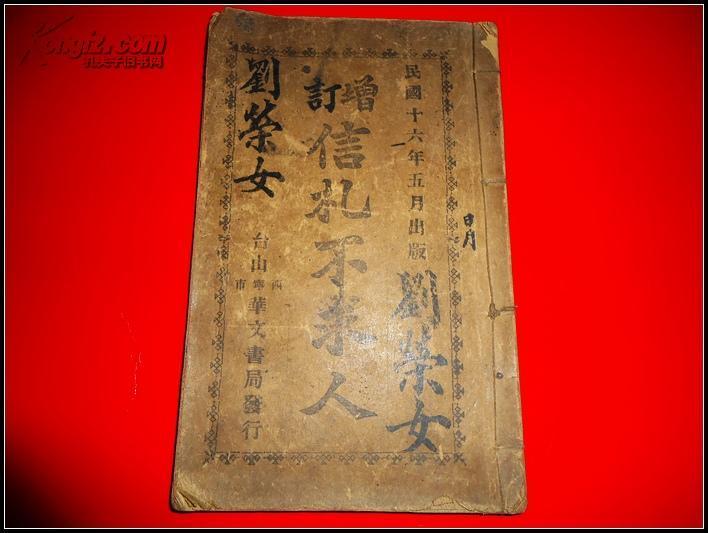 Kongfz.com
孔夫子旧书网
民國十六年五月出版
增訂
信札不求人
台山
西寧市
華文書局發行
劉榮女
劉榮女
日月